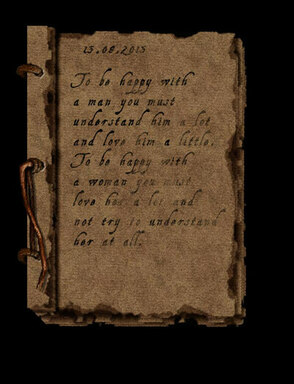 15.08.2015
To be happy with
a man you must
understand him a lot
and love him a little.
To be happy with
a woman you must
love her a lot and
not try to understand
her at all.